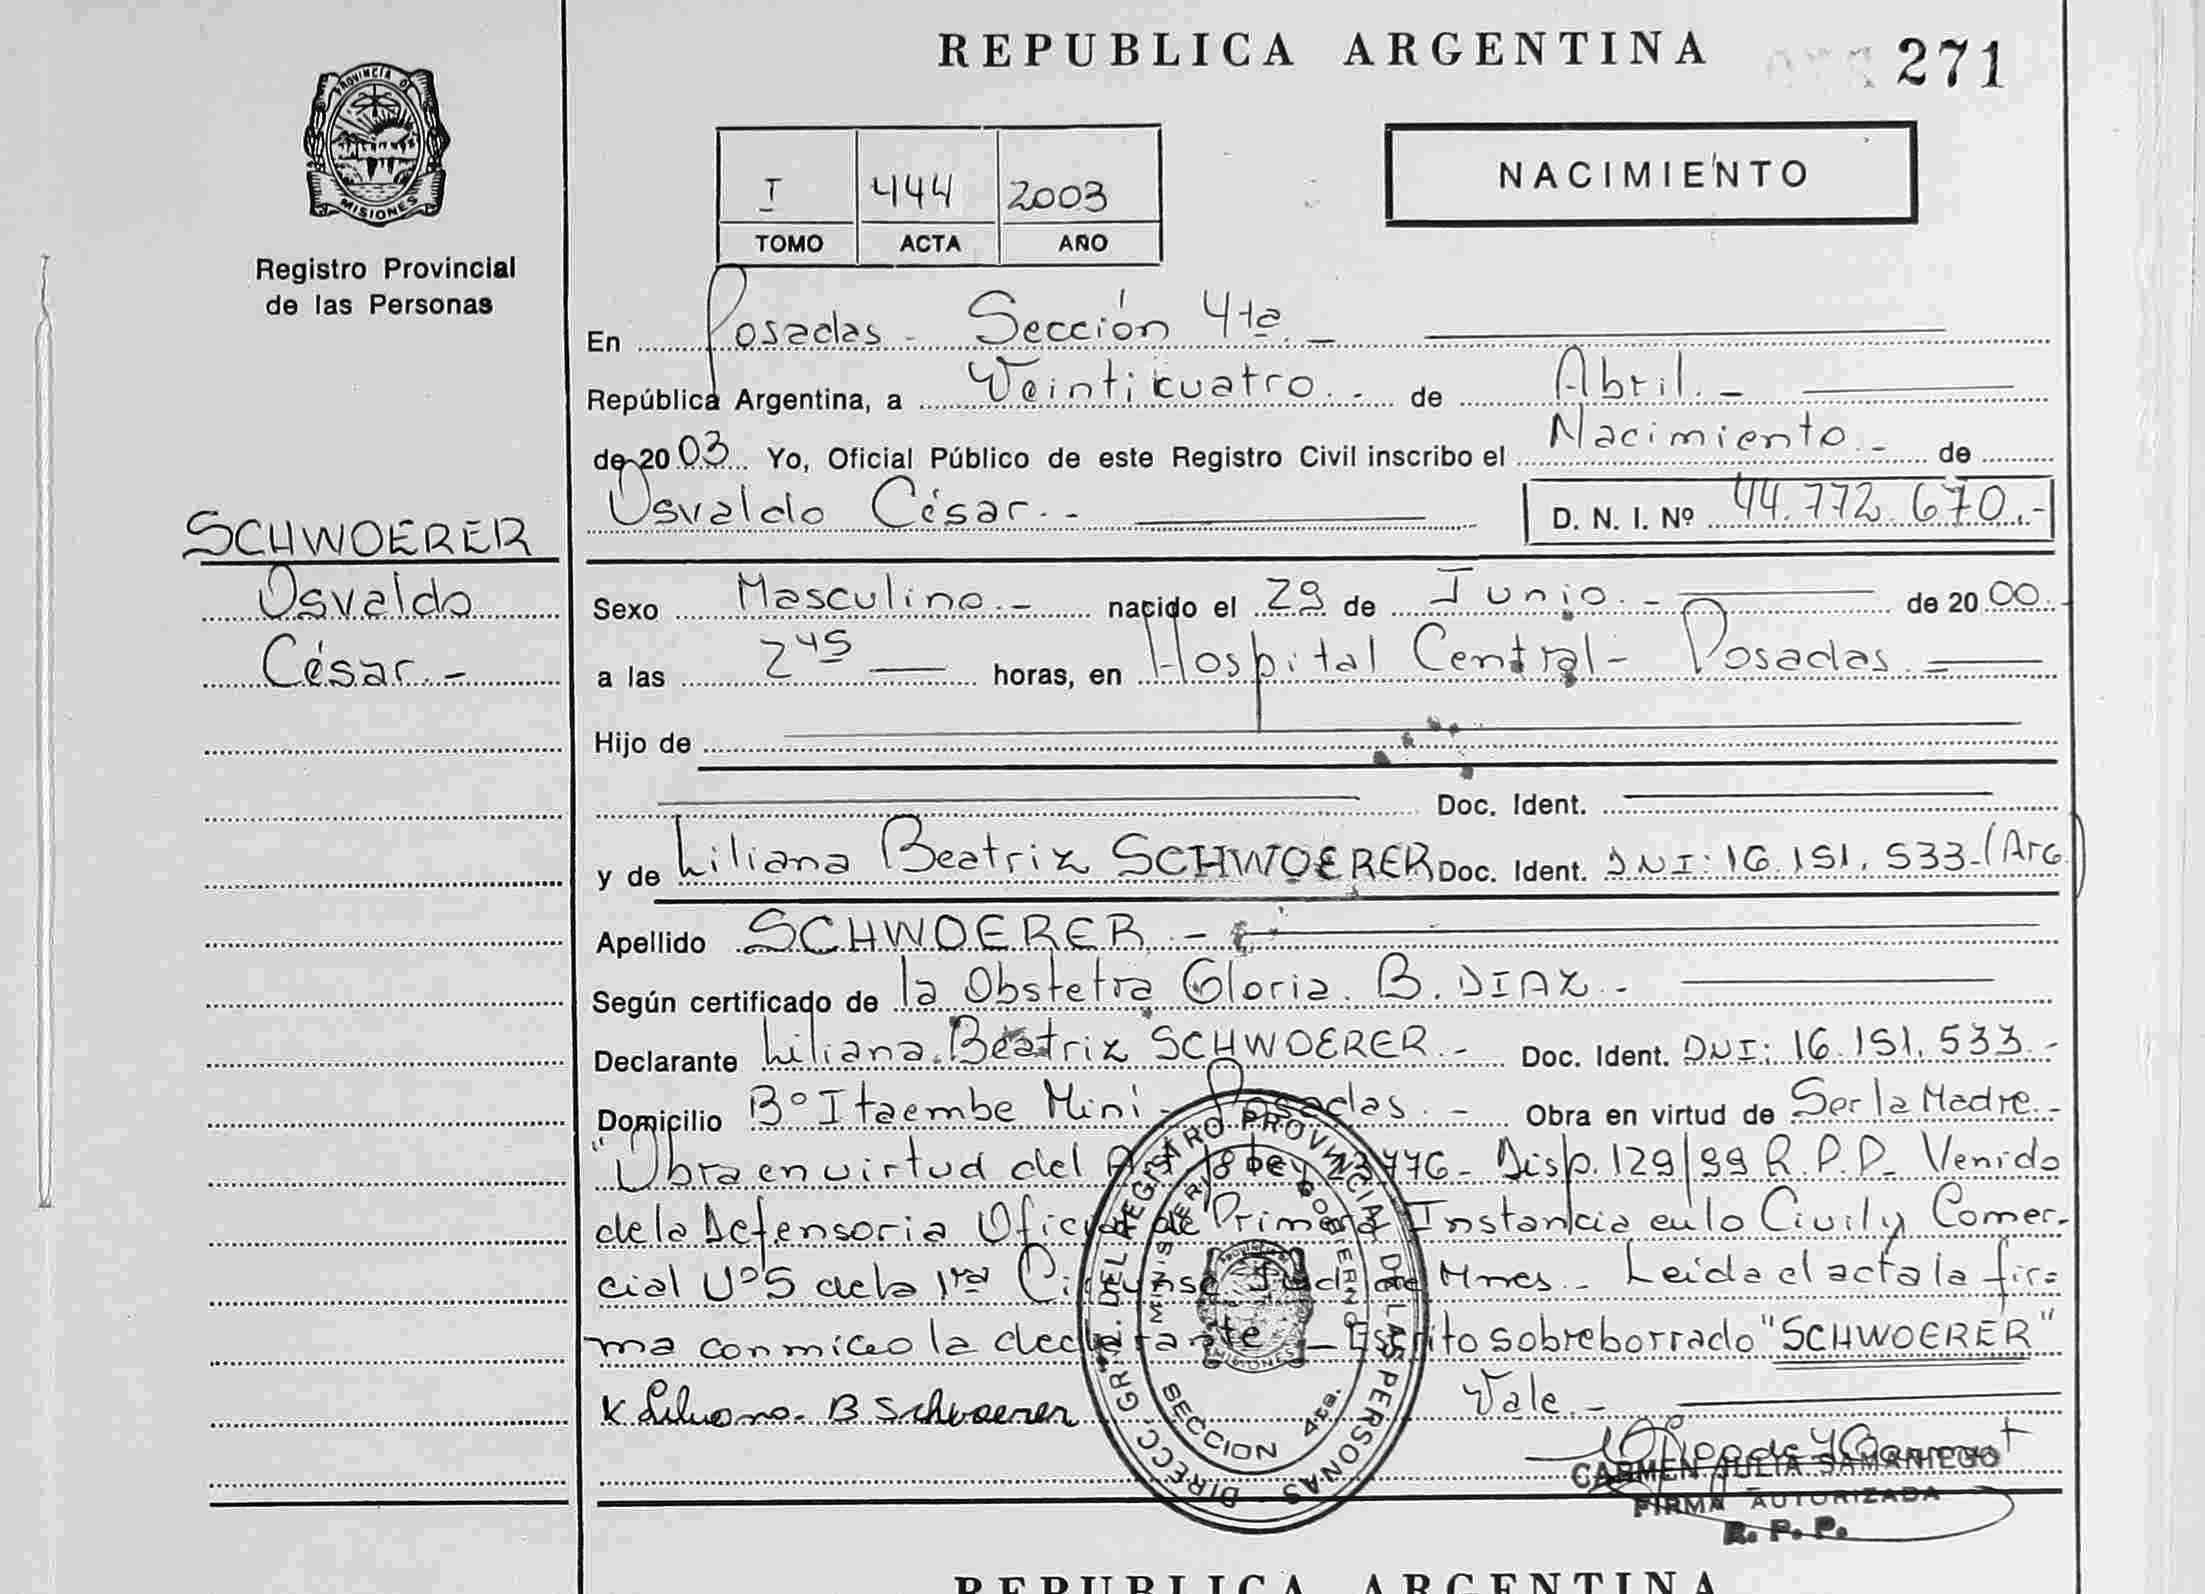 REPUBLICA ARGENTINA
271
PROVINCIA DE
MISIONES
Registro Provincial
de las Personas
I 444 2003
TOMO ACTA AÑO
NACIMIENTO
En Posadas - Sección 4ta. -
República Argentina, a Veinticuatro. - de Abril. -
de 2003 Yo, Oficial Público de este Registro Civil inscribo el Nacimiento - de
Osvaldo César. - D. N. I. Nº 44.772.670.-
SCHWOERER
Osvaldo
César. -
Sexo Masculino. - nacido el 29 de Junio. - de 2000.
a las 2 45 horas, en Hospital Central - Posadas. -
Hijo de
Doc. Ident.
y de Liliana Beatriz SCHWOERER Doc. Ident. DNI: 16.151.533-(Arg
Apellido SCHWOERER. -
Según certificado de la Obstetra Gloria. B. DIAZ. -
Declarante Liliana Beatriz SCHWOERER. - Doc. Ident. DNI: 16.151.533.-
Domicilio Bº Itaembe Mini - Posadas. - Obra en virtud de Ser la Madre. -
"Obra en virtud del Ley Disp. 129/99 R.P.P. Venido
de la Defensoria Oficial de Primera Instancia en lo Civil y Comer-
cial Nº5 de la 1ra Circunsc. Jud. de Mnes - Leida el acta la fir=
ma conmigo la declarante - Escrito sobreborrado "SCHWOERER"
Vale. -
Liliana B Schwoerer
DIRECC. GR. DEL REGISTRO PROVINCIAL DE LAS PERSONAS
MINISTERIO GOBIERNO
SECCION 4ta.
CARMEN JULIA SAMANIEGO
FIRMA AUTORIZADA
R. P. P.
REPUBLICA ARGENTINA